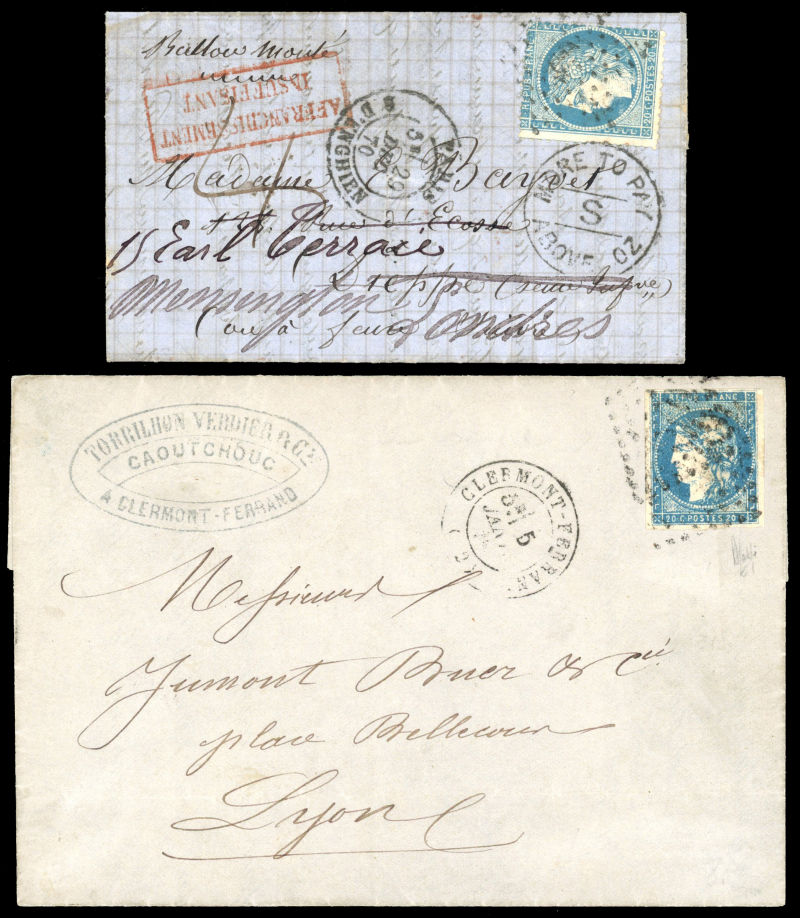 Ballon Monté
AFFRANCHISSEMENT
INSUFFISANT
PARIS
5E 29
DEC
70
B. D'ENGHIEN
REPUB. FRANC.
20 C. POSTES 20 C.
MORE TO PAY
S
ABOVE OZ
Madame Bazvet
Rue d'Ecosse
15 Earl Terrace
Dieppe (Seine Infre)
Kensington
Londres
(ou à faire
TORRILHON VERDIER & Cie
CAOUTCHOUC
A CLERMONT-FERRAND
CLERMONT-FERRAN
5
JANV
REPUB. FRANC.
20 C. POSTES 20 C.
Messieurs
Jumont Buer & Cie
place Bellecour
Lyon